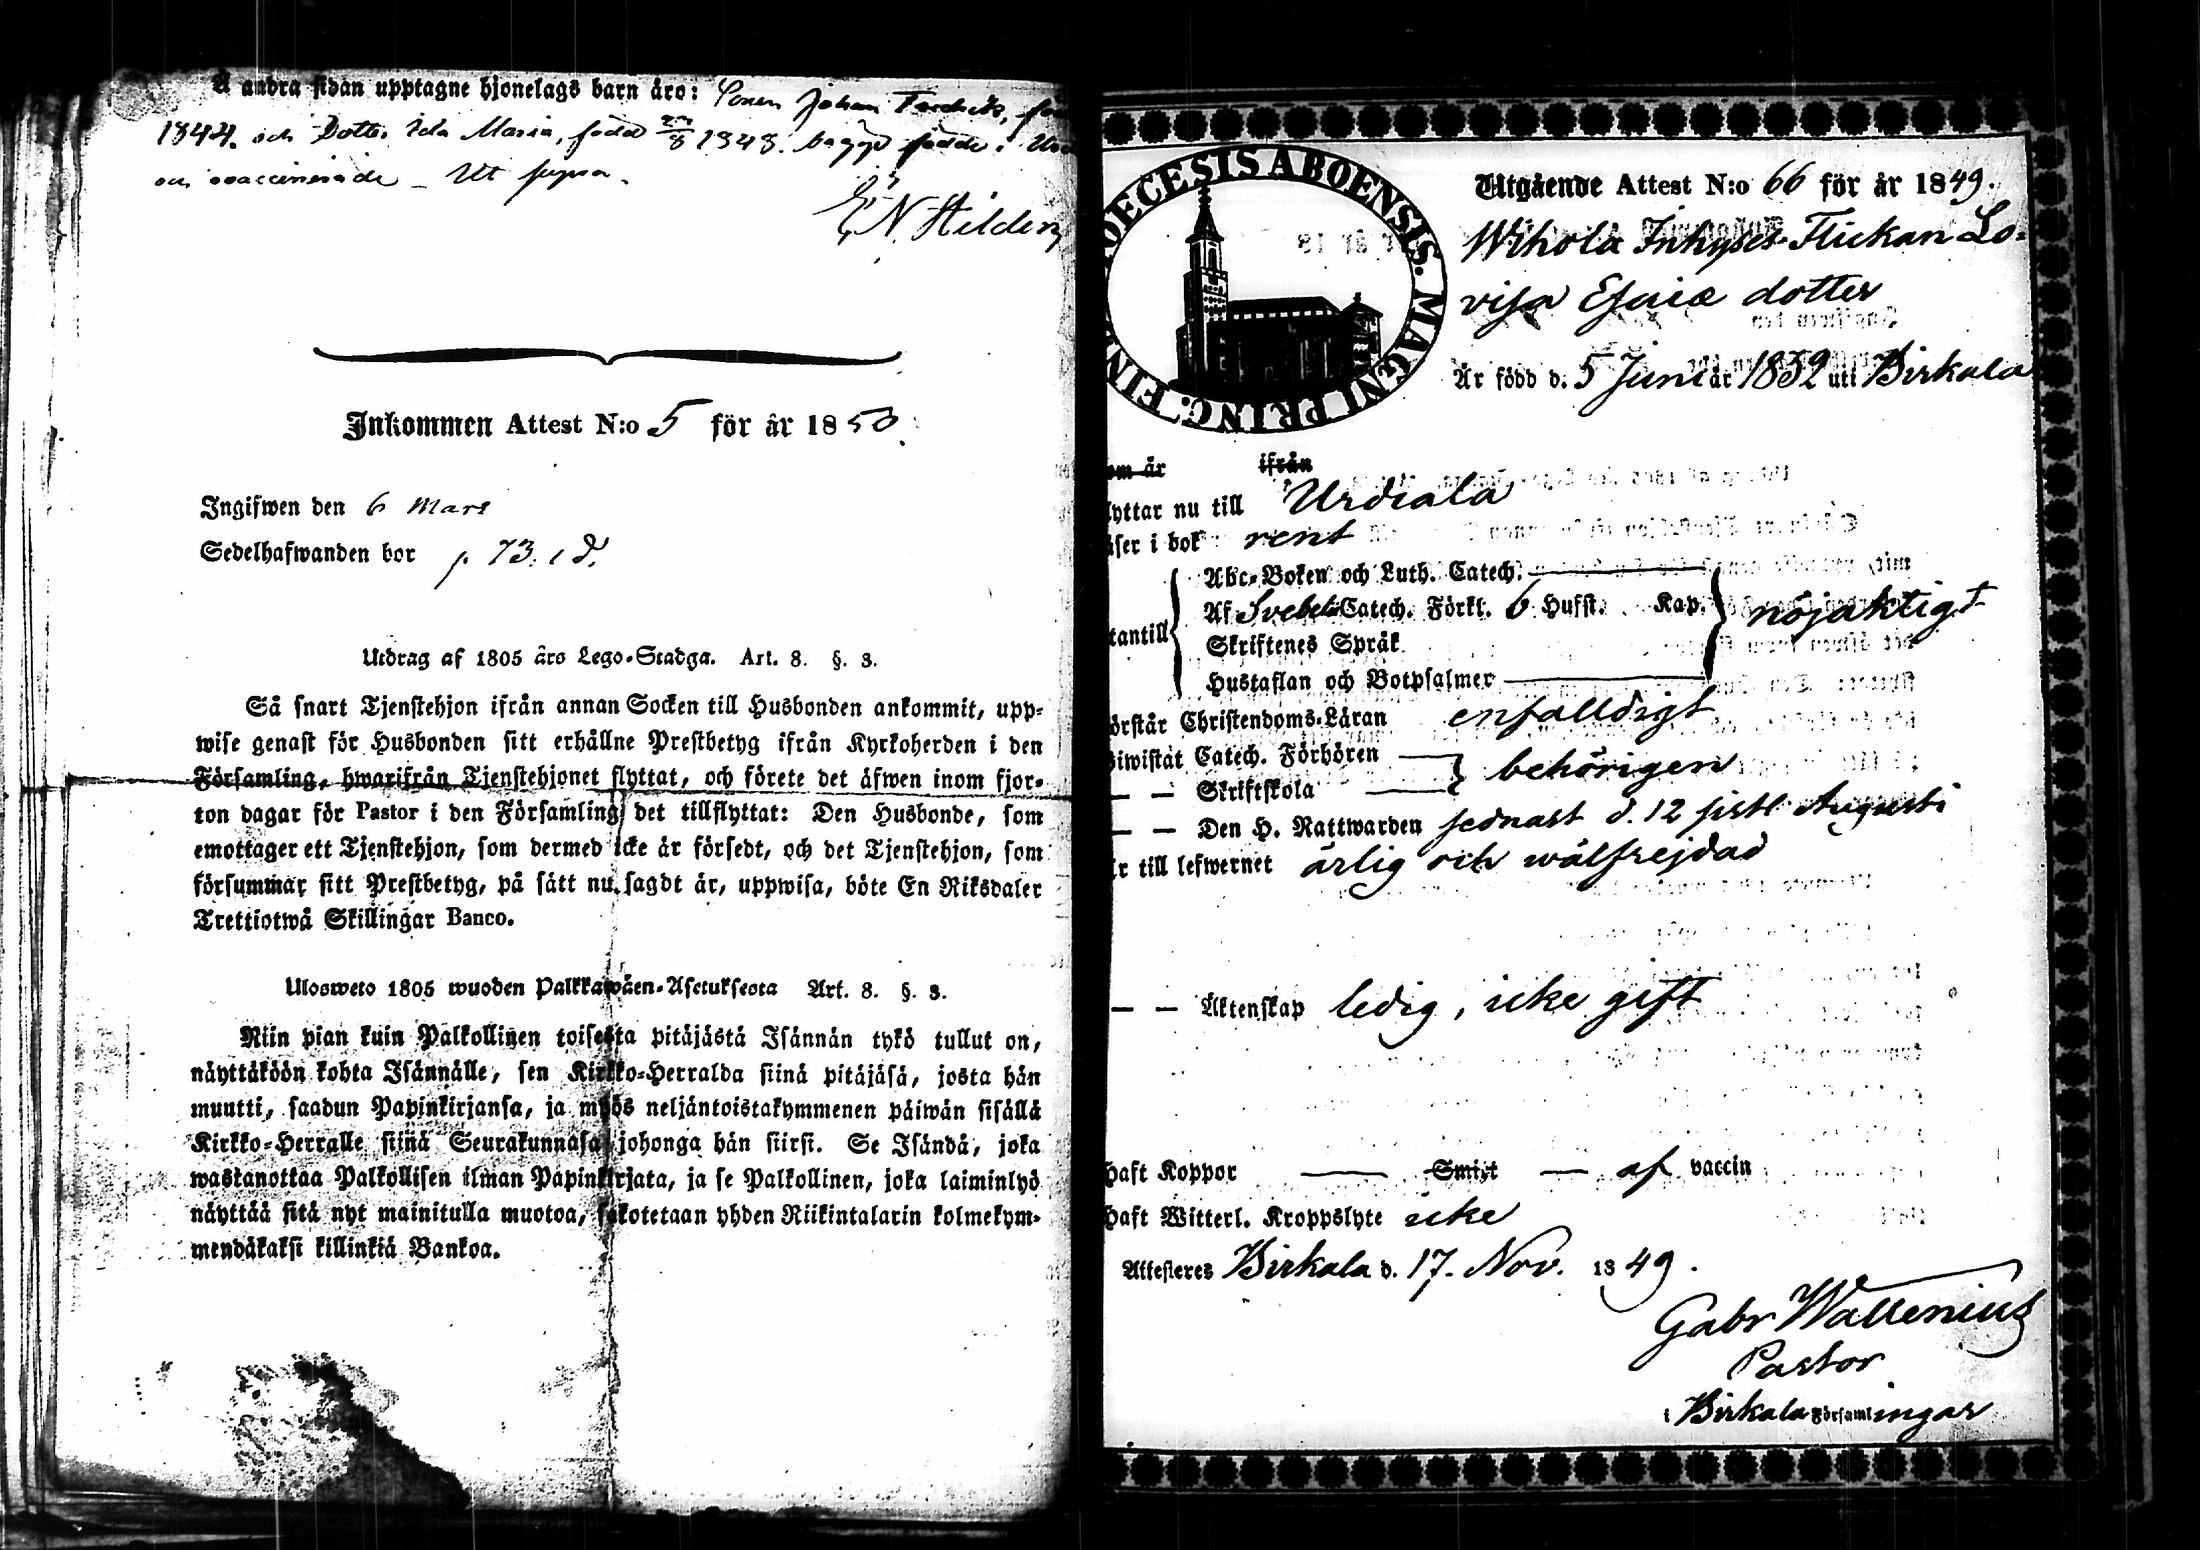 å andra sidan upptagne hjonelags barn äro: Sonen Johan Fredrik, fö
1844. och Dotter Ida Maria, född 27/8 1848. bägge födde i Urd
och vaccinerade _ Ut supra.
E. N. Hilden
Inkommen Attest N:o 5 för år 1850.
Ingifwen den 6 Mars
Sedelhafwanden bor p. 73.
Utdrag af 1805 års Lego-Stadga. Art. 8. §. 3.
Så snart Tjenstehjon ifrån annan Socken till Husbonden ankommit, upp-
wise genast för Husbonden sitt erhållne Prestbetyg ifrån Kyrkoherden i den
Församling, hwarifrån Tjenstehjonet flyttat, och förete det äfwen inom fjor-
ton dagar för Pastor i den Församling det tillflyttat: Den Husbonde, som
emottager ett Tjenstehjon, som dermed icke är försedt, och det Tjenstehjon, som
försummar sitt Prestbetyg, på sätt nu sagdt är, uppwisa, böte En Riksdaler
Trettiotwå Skillingar Banco.
Ulosweto 1805 wuoden Palkkawäen-Asetuksesta Art. 8. §. 3.
Niin pian kuin Palkollinen toisesta pitäjästä Isännän tykö tullut on,
näyttäköön kohta Isännälle, sen Kirkko-Herralda siinä pitäjäsä, josta hän
muutti, saadun Papinkirjansa, ja myös neljäntoistakymmenen päiwän sisällä
Kirkko-Herralle siinä Seurakunnasa johonga hän siirsi. Se Isändä, joka
wastanottaa Palkollisen ilman Papinkirjata, ja se Palkollinen, joka laiminlyö
näyttää sitä nyt mainitulla muotoa, sakotetaan yhden Riikintalarin kolmekym-
mendäkaksi killinkiä Bankoa.
OECESIS ABOENSIS. MAGNI PRINC. FIN
Utgående Attest N:o 66 för år 1849.
Wihola Inhyses Flickan Lo-
visa Esaiæ dotter
Är född d. 5 Juni år 1832 uti Birkala
om är ifrån
lyttar nu till Urdiala
äser i bok rent
Abc-Boken och Luth. Catech.
tantill Af Svebeli Catech. Förkl. 6 Hufst. Kap. nöjaktigt
Skriftenes Språk
Hustaflan och Botpsalmer
örstår Christendoms-Läran enfalldigt
iwistat Catech. Förhören behörigen
— — Skriftskola
— — Den H. Nattwarden sednast d. 12 sistl. Augusti
r till lefwernet ärlig och wälfrejdad
— — Äktenskap ledig, icke gift
haft Koppor — Smitt — af vaccin
haft Witterl. Kroppslyte icke
Attesteres Birkala d. 17. Nov. 1849.
Gabr Wallenius
Pastor
i Birkala Församlingar